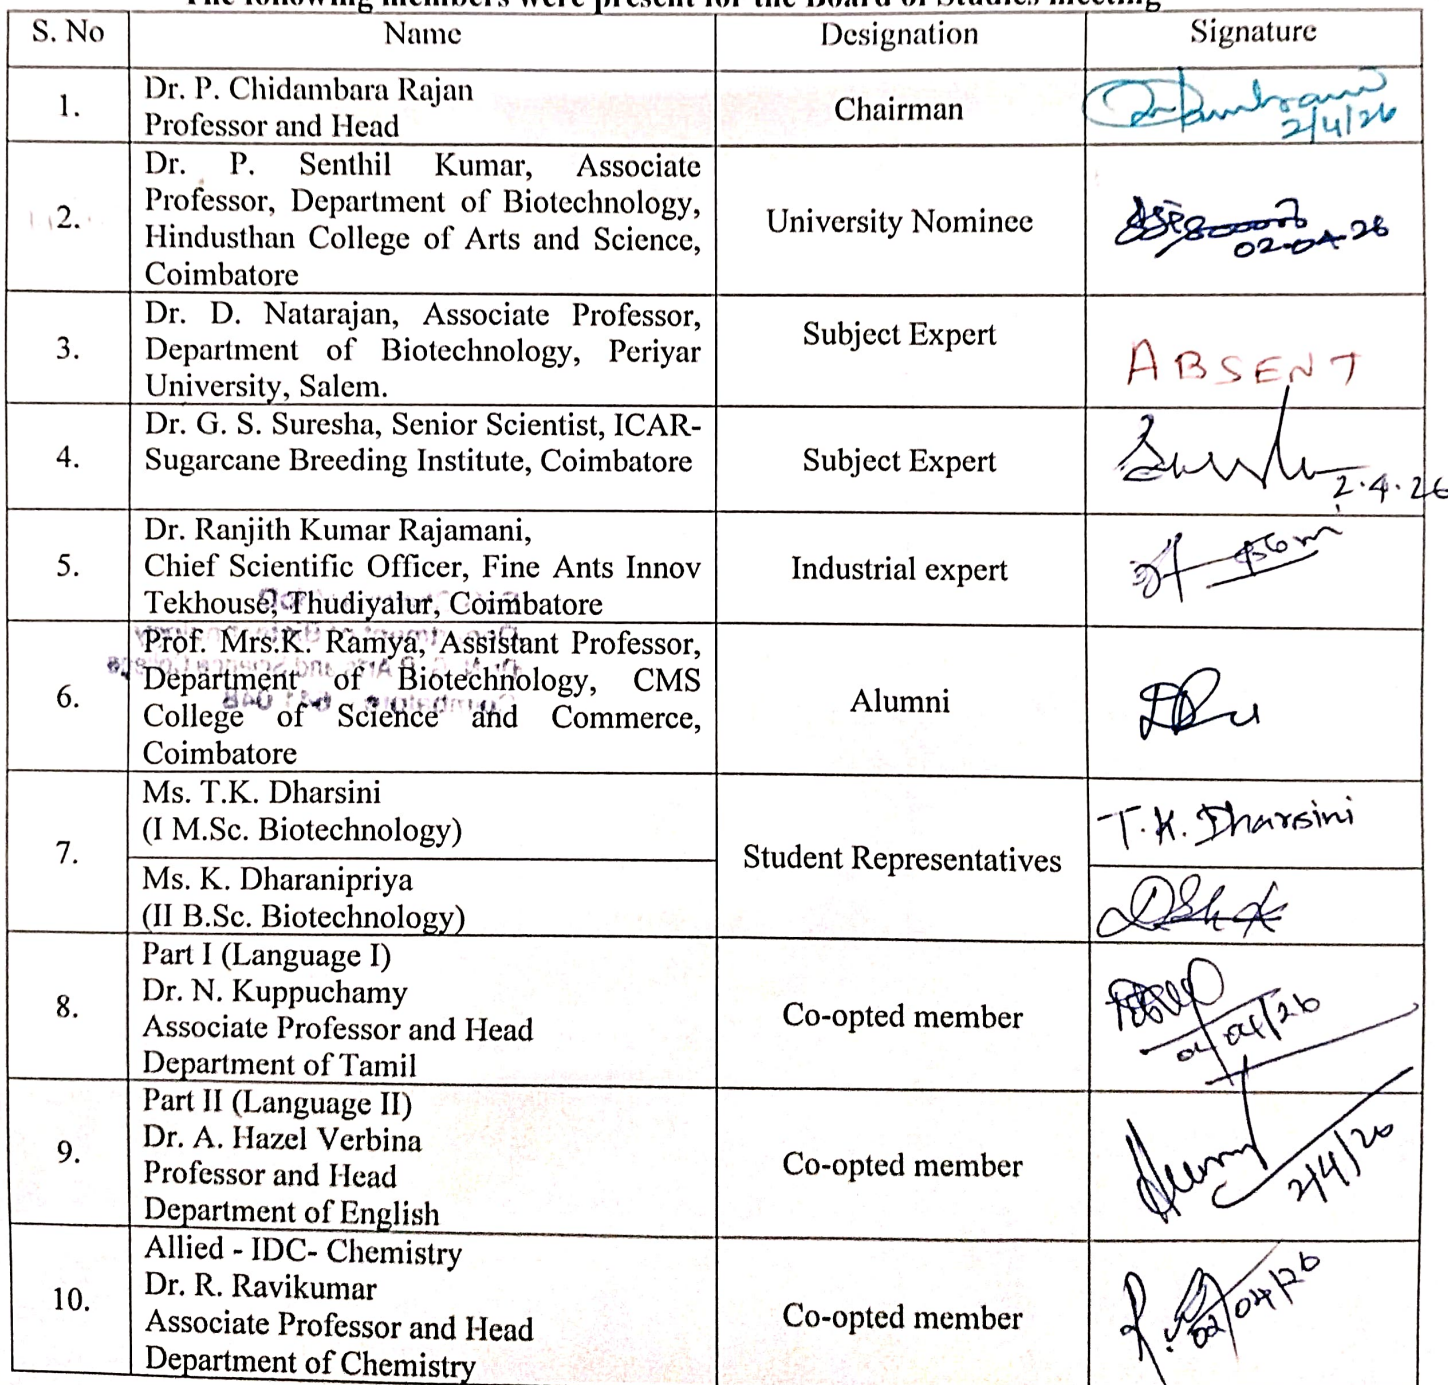 The following members were present for the Board of Studies meeting
S. No Name Designation Signature
1.
Dr. P. Chidambara Rajan
Professor and Head
Chairman
2/4/26
2.
Dr. P. Senthil Kumar, Associate
Professor, Department of Biotechnology,
Hindusthan College of Arts and Science,
Coimbatore
University Nominee
02.04.26
3.
Dr. D. Natarajan, Associate Professor,
Department of Biotechnology, Periyar
University, Salem.
Subject Expert
ABSENT
4.
Dr. G. S. Suresha, Senior Scientist, ICAR-
Sugarcane Breeding Institute, Coimbatore
Subject Expert
2.4.26
5.
Dr. Ranjith Kumar Rajamani,
Chief Scientific Officer, Fine Ants Innov
Tekhouse, Thudiyalur, Coimbatore
Industrial expert
6.
Prof. Mrs.K. Ramya, Assistant Professor,
Department of Biotechnology, CMS
College of Science and Commerce,
Coimbatore
Alumni
7.
Ms. T.K. Dharsini
(I M.Sc. Biotechnology)
Student Representatives
T.K. Dharsini
Ms. K. Dharanipriya
(II B.Sc. Biotechnology)
8.
Part I (Language I)
Dr. N. Kuppuchamy
Associate Professor and Head
Department of Tamil
Co-opted member
9.
Part II (Language II)
Dr. A. Hazel Verbina
Professor and Head
Department of English
Co-opted member
2/4/26
10.
Allied - IDC- Chemistry
Dr. R. Ravikumar
Associate Professor and Head
Department of Chemistry
Co-opted member
02/04/26